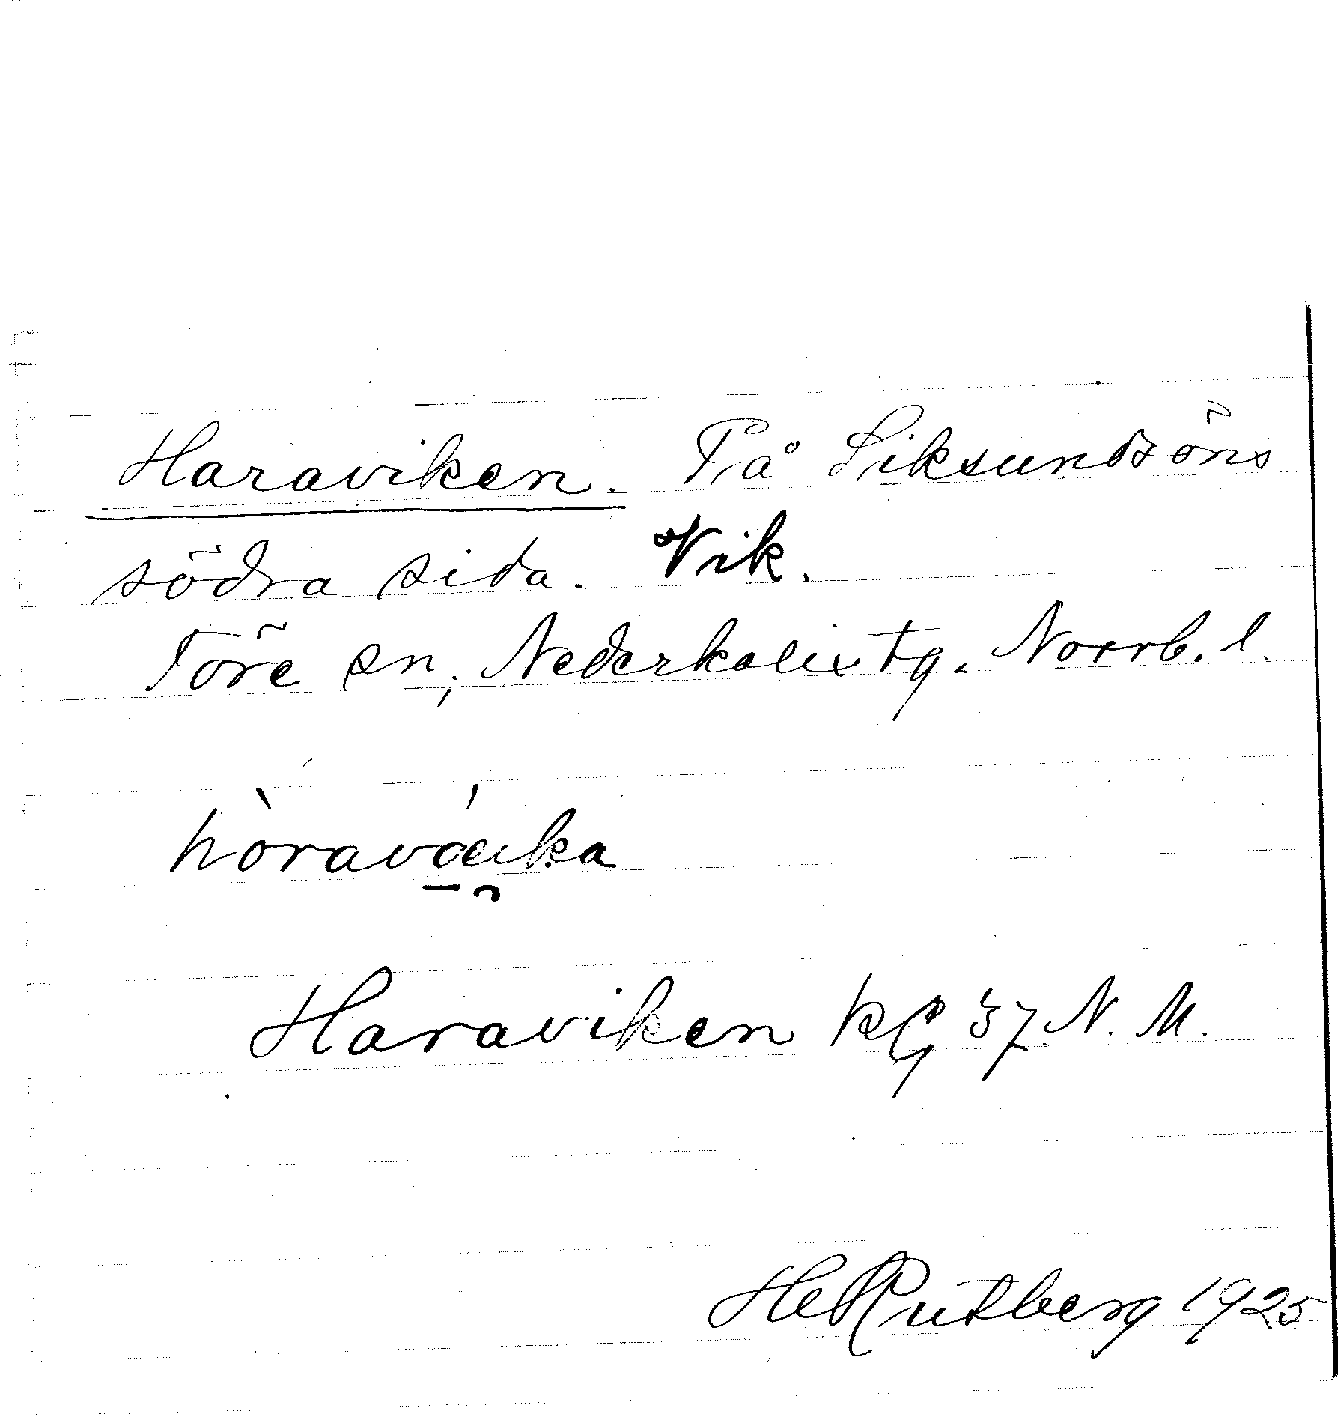 Haraviken. På Siksundsöns
södra sida. Vik.
Töre sn, Nederkalix tg. Norrb. l.
hòraváika
Haraviken kG 37 N. M.
HeRutberg 1925